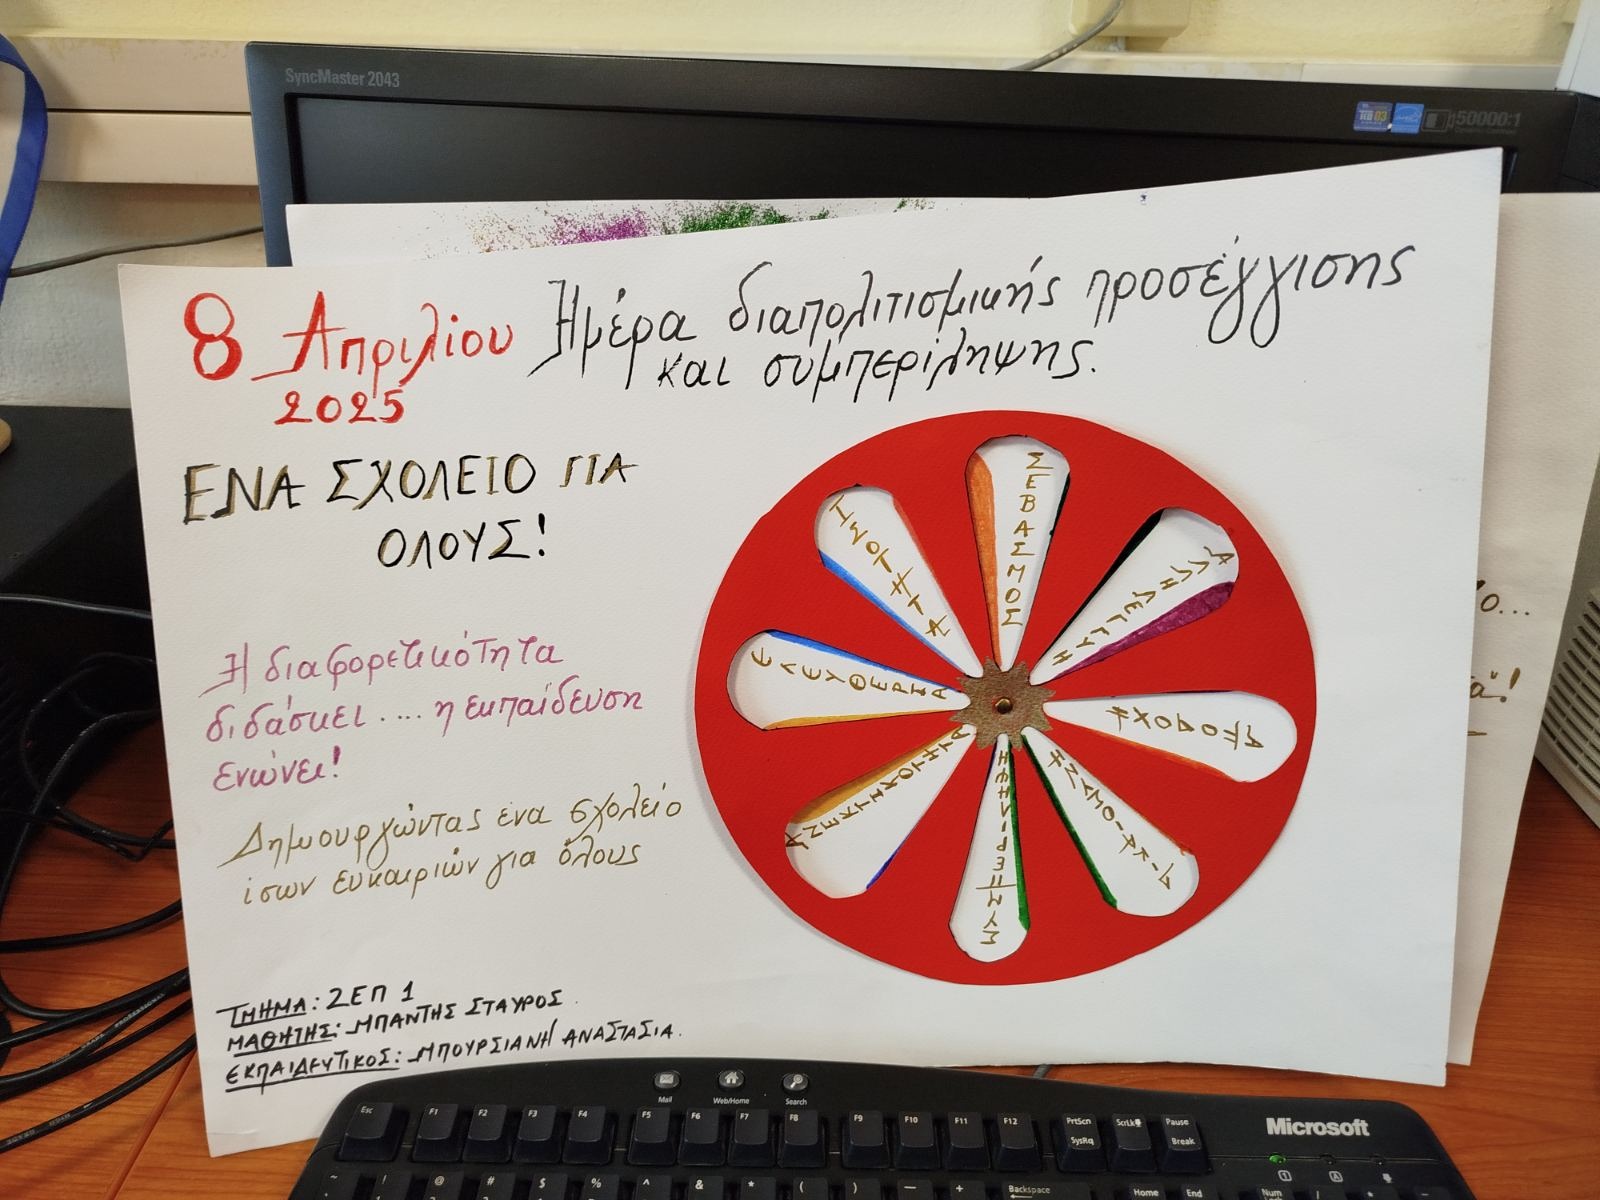 SyncMaster 2043
50000:1
8 Απριλίου Ημέρα διαπολιτισμικής προσέγγισης
2025 και συμπερίληψης.
ΕΝΑ ΣΧΟΛΕΙΟ ΓΙΑ
ΟΛΟΥΣ!
Η διαφορετικότητα
διδάσκει .... η εκπαίδευση
ενώνει!
Δημιουργώντας ένα σχολείο
ίσων ευκαιριών για όλους
ΣΕΒΑΣΜΟΣ
ΑΛΛΗΛΕΓΓΥΗ
ΑΠΟΔΟΧΗ
ΣΥΜΠΕΡΙΛΗΨΗ
ΑΝΕΚΤΙΚΟΤΗΤΑ
ΕΛΕΥΘΕΡΙΑ
ΙΣΟΤΗΤΑ
ΤΜΗΜΑ: 2ΕΠ 1
ΜΑΘΗΤΗΣ: ΜΠΑΝΤΗΣ ΣΤΑΥΡΟΣ.
ΕΚΠΑΙΔΕΥΤΙΚΟΣ: ΜΠΟΥΡΣΙΑΝΗ ΑΝΑΣΤΑΣΙΑ.
Mail Web/Home Search
Esc F1 F2 F3 F4 F5 F6 F7 F8 F9 F10 F11 F12 PrtScn SysRq ScrLk Pause Break
Microsoft
~ ! @ # $ % ^ & * ( ) — + Backspace Home End Num